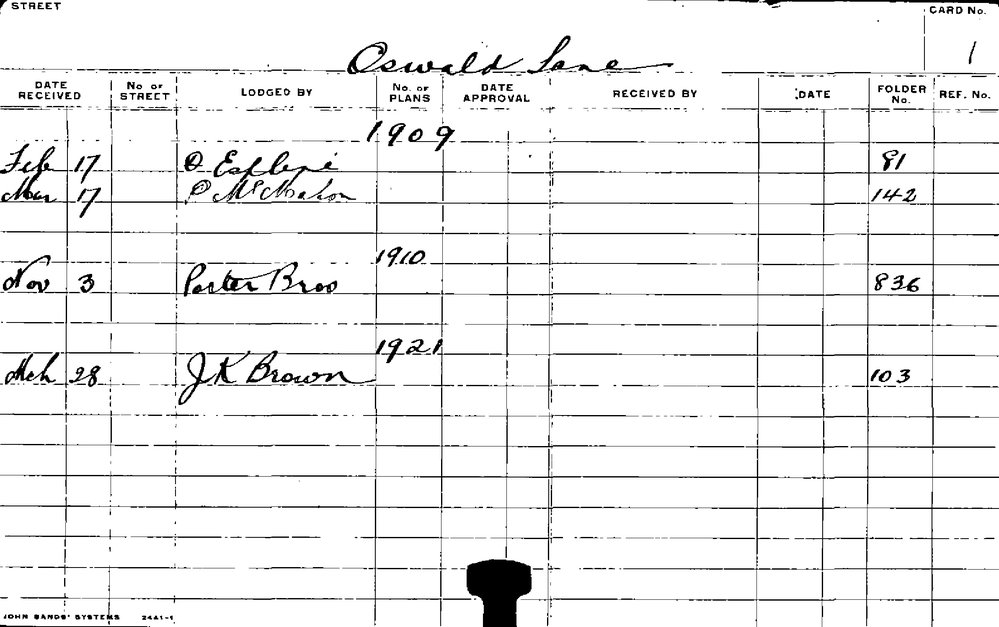 STREET
CARD No.
Oswald Lane
1
DATE RECEIVED No of STREET LODGED BY No. of PLANS DATE APPROVAL RECEIVED BY DATE FOLDER No. REF. No.
1909
Feb 17 81
Mar 17 P McMahon 142
1910
Nov 3 Porter Bros 836
1921
Mch 28 J K Brown 103
JOHN SANDS' SYSTEMS 2441-1